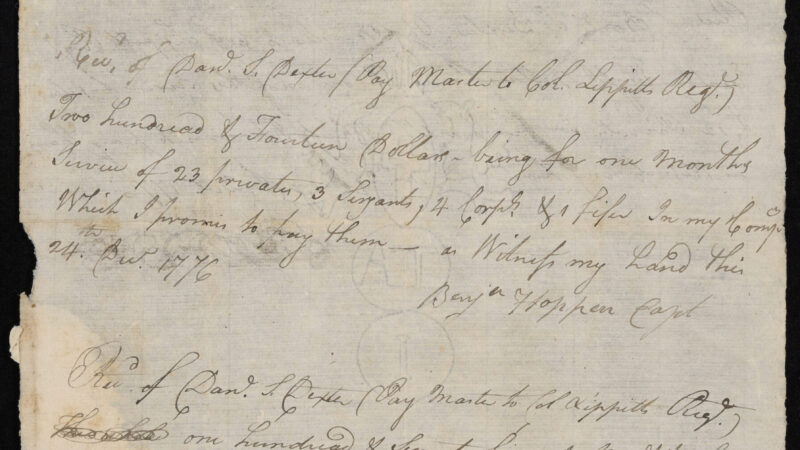 Rec.d of Dan.l S. Dexter (Pay Master to Col. Lippitts Reg.t)
Two hundread & Fourteen Dollars – being for one Months
Servise of 23 privates, 3 Sirgants, 4 Corp.ls & 1 fifer In my Comp.y
Which I promis to pay them — as Witness my hand this
24.th Dec.r 1776
Benj.n Hoppen Capt
Rec.d of Dan.l S. Dexter (Pay Master to Col Lippitts Reg.t)
one hundread &